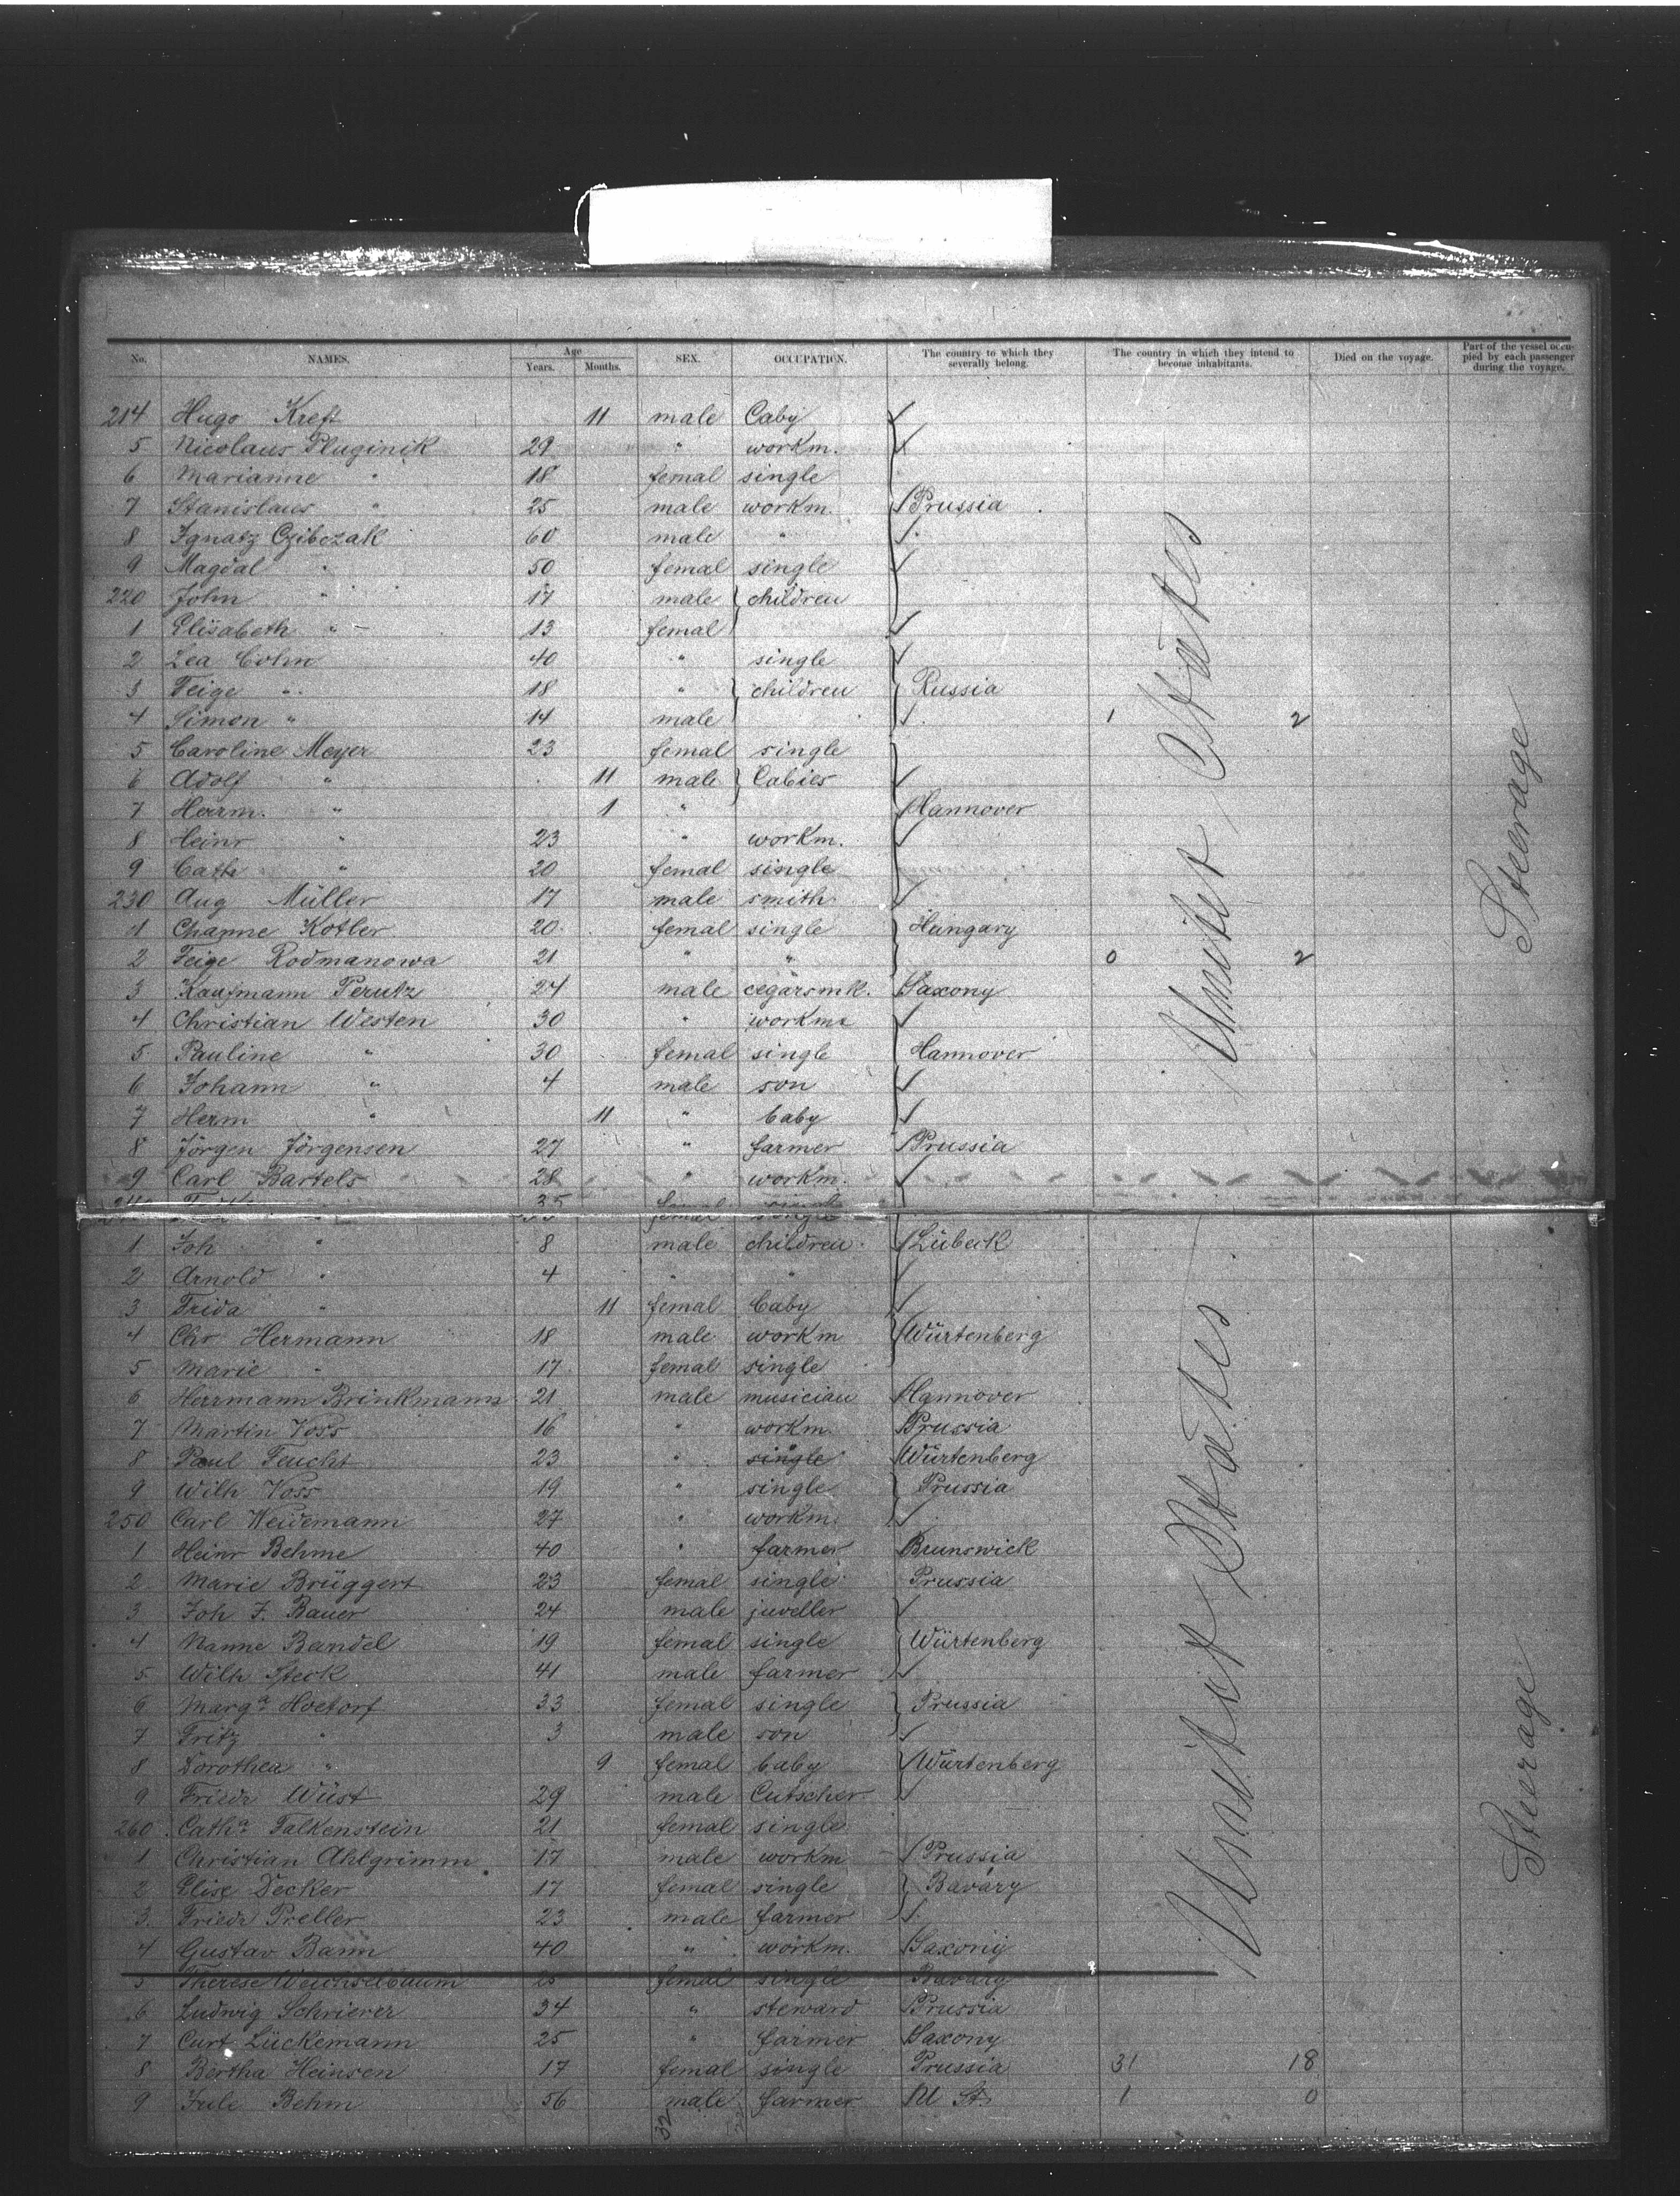 No. NAMES. Age Years. Months. SEX. OCCUPATION. The country to which they severally belong. The country in which they intend to become inhabitants. Died on the voyage. Part of the vessel occupied by each passenger during the voyage.
214 Hugo Kreft 11 male Baby
5 Nicolaus Pluginik 29 " workm.
6 Marianne " 18 femal single
7 Stanislaus " 25 male workm. Prussia
8 Ignatz Czibczak 60 male "
9 Magdal " 50 femal single
220 John " 17 male children
1 Elisabeth " 13 femal
2 Lea Cohn 40 " single
3 Feige " 18 " children Russia
4 Simon " 14 male 1 2
5 Caroline Meyer 23 femal single
6 Adolf " 11 male Babies
7 Herrm. " 1 " Hannover
8 Heinr " 23 " workm.
9 Cath " 20 femal single
230 Aug Müller 17 male smith
1 Channe Kotler 20 femal single Hungary
2 Feige Rodmanowa 21 " " 0 2
3 Kaufmann Perutz 24 male cegarsmk. Saxony
4 Christian Westen 30 " workm
5 Pauline " 30 femal single Hannover
6 Johann " 4 male son
7 Herm " 11 " baby
8 Jörgen Jörgensen 27 " farmer Prussia
9 Carl Bartels 28 " workm.
35 femal single
1 Joh " 8 male children Lübeck
2 Arnold " 4 " "
3 Frida " 11 femal baby
4 Chr Hermann 18 male workm Würtenberg
5 Marie " 17 femal single
6 Herrmann Brinkmann 21 male musician Hannover
7 Martin Voss 16 " workm. Prussia
8 Paul Feucht 23 " single Würtenberg
9 Wilh Voss 19 " single Prussia
250 Carl Weidemann 27 " workm.
1 Heinr Behme 40 " farmer Brunswick
2 Marie Brüggert 23 femal single Prussia
3 Joh F. Bauer 24 male juveller
4 Nanne Bandel 19 femal single Würtenberg
5 Wilh Steck 41 male farmer
6 Marga Hoetorf 33 femal single Prussia
7 Fritz " 3 male son
8 Dorothea " 9 femal baby Würtenberg
9 Friedr Wüst 29 male Cutscher
260 Catha Falkenstein 21 femal single
1 Christian Ahlgrimm 17 male workm Prussia
2 Elise Decker 17 femal single Bavary
3 Friedr Preller 23 male farmer
4 Gustav Bann 40 " workm. Saxony
5 Therese Weichselbaum 25 femal single Bavary
6 Ludwig Schrierer 34 " steward Prussia
7 Curt Lückemann 25 " farmer Saxony
8 Bertha Heinsen 17 femal single Prussia 31 18
9 Jule Behm 56 male farmer U St 1 0
32
United States
Steerage
United States
Steerage